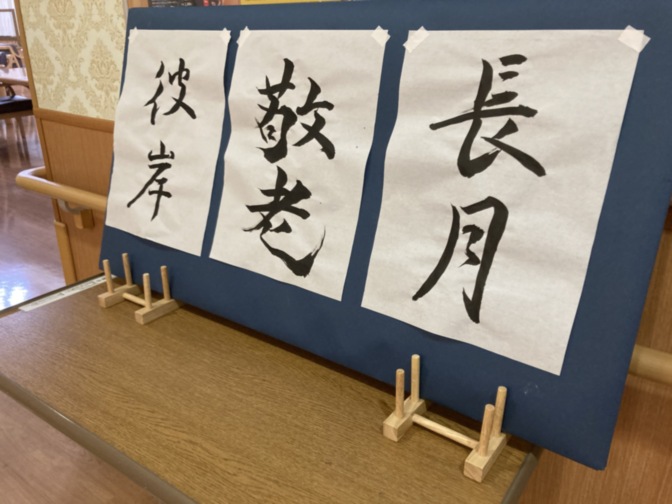 長月
敬老
彼岸